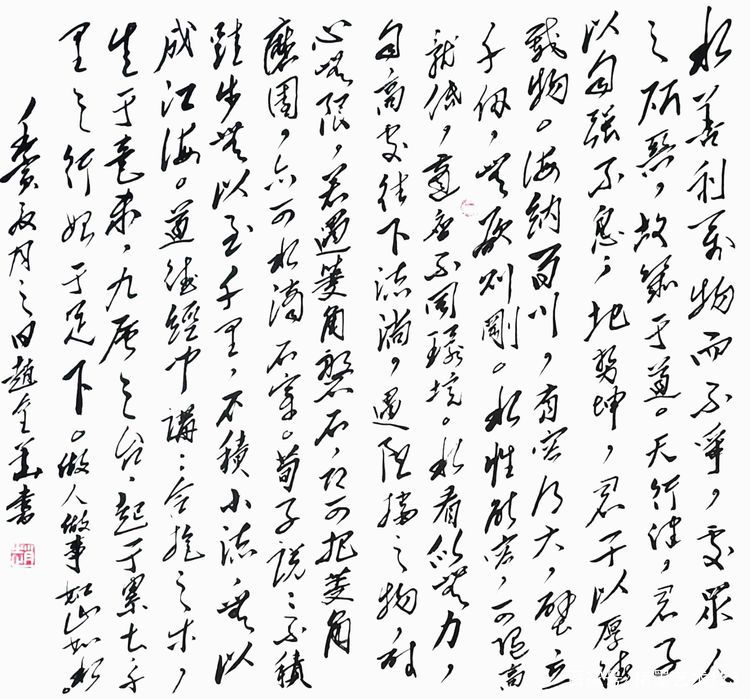 水善利萬物而不爭，處眾人
之所惡，故幾于道。天行健，君子
以自强不息；地势坤，君子以厚德
載物。海納百川，有容乃大，壁立
千仞，無欲则剛。水性能容，可随高
就低，適應不同環境。水看似無力，
自高处往下流淌，遇阻擋之物，耐
心無限，若遇菱角磐石，既可把菱角
磨圓，亦可水滴石穿。荀子说：不積
跬步無以至千里，不積小流，無以
成江海。道德經中講：合抱之木，
生于毫末，九层之台，起于累土，千
里之行始于足下。做人做事如山如水。
月之日趙全書